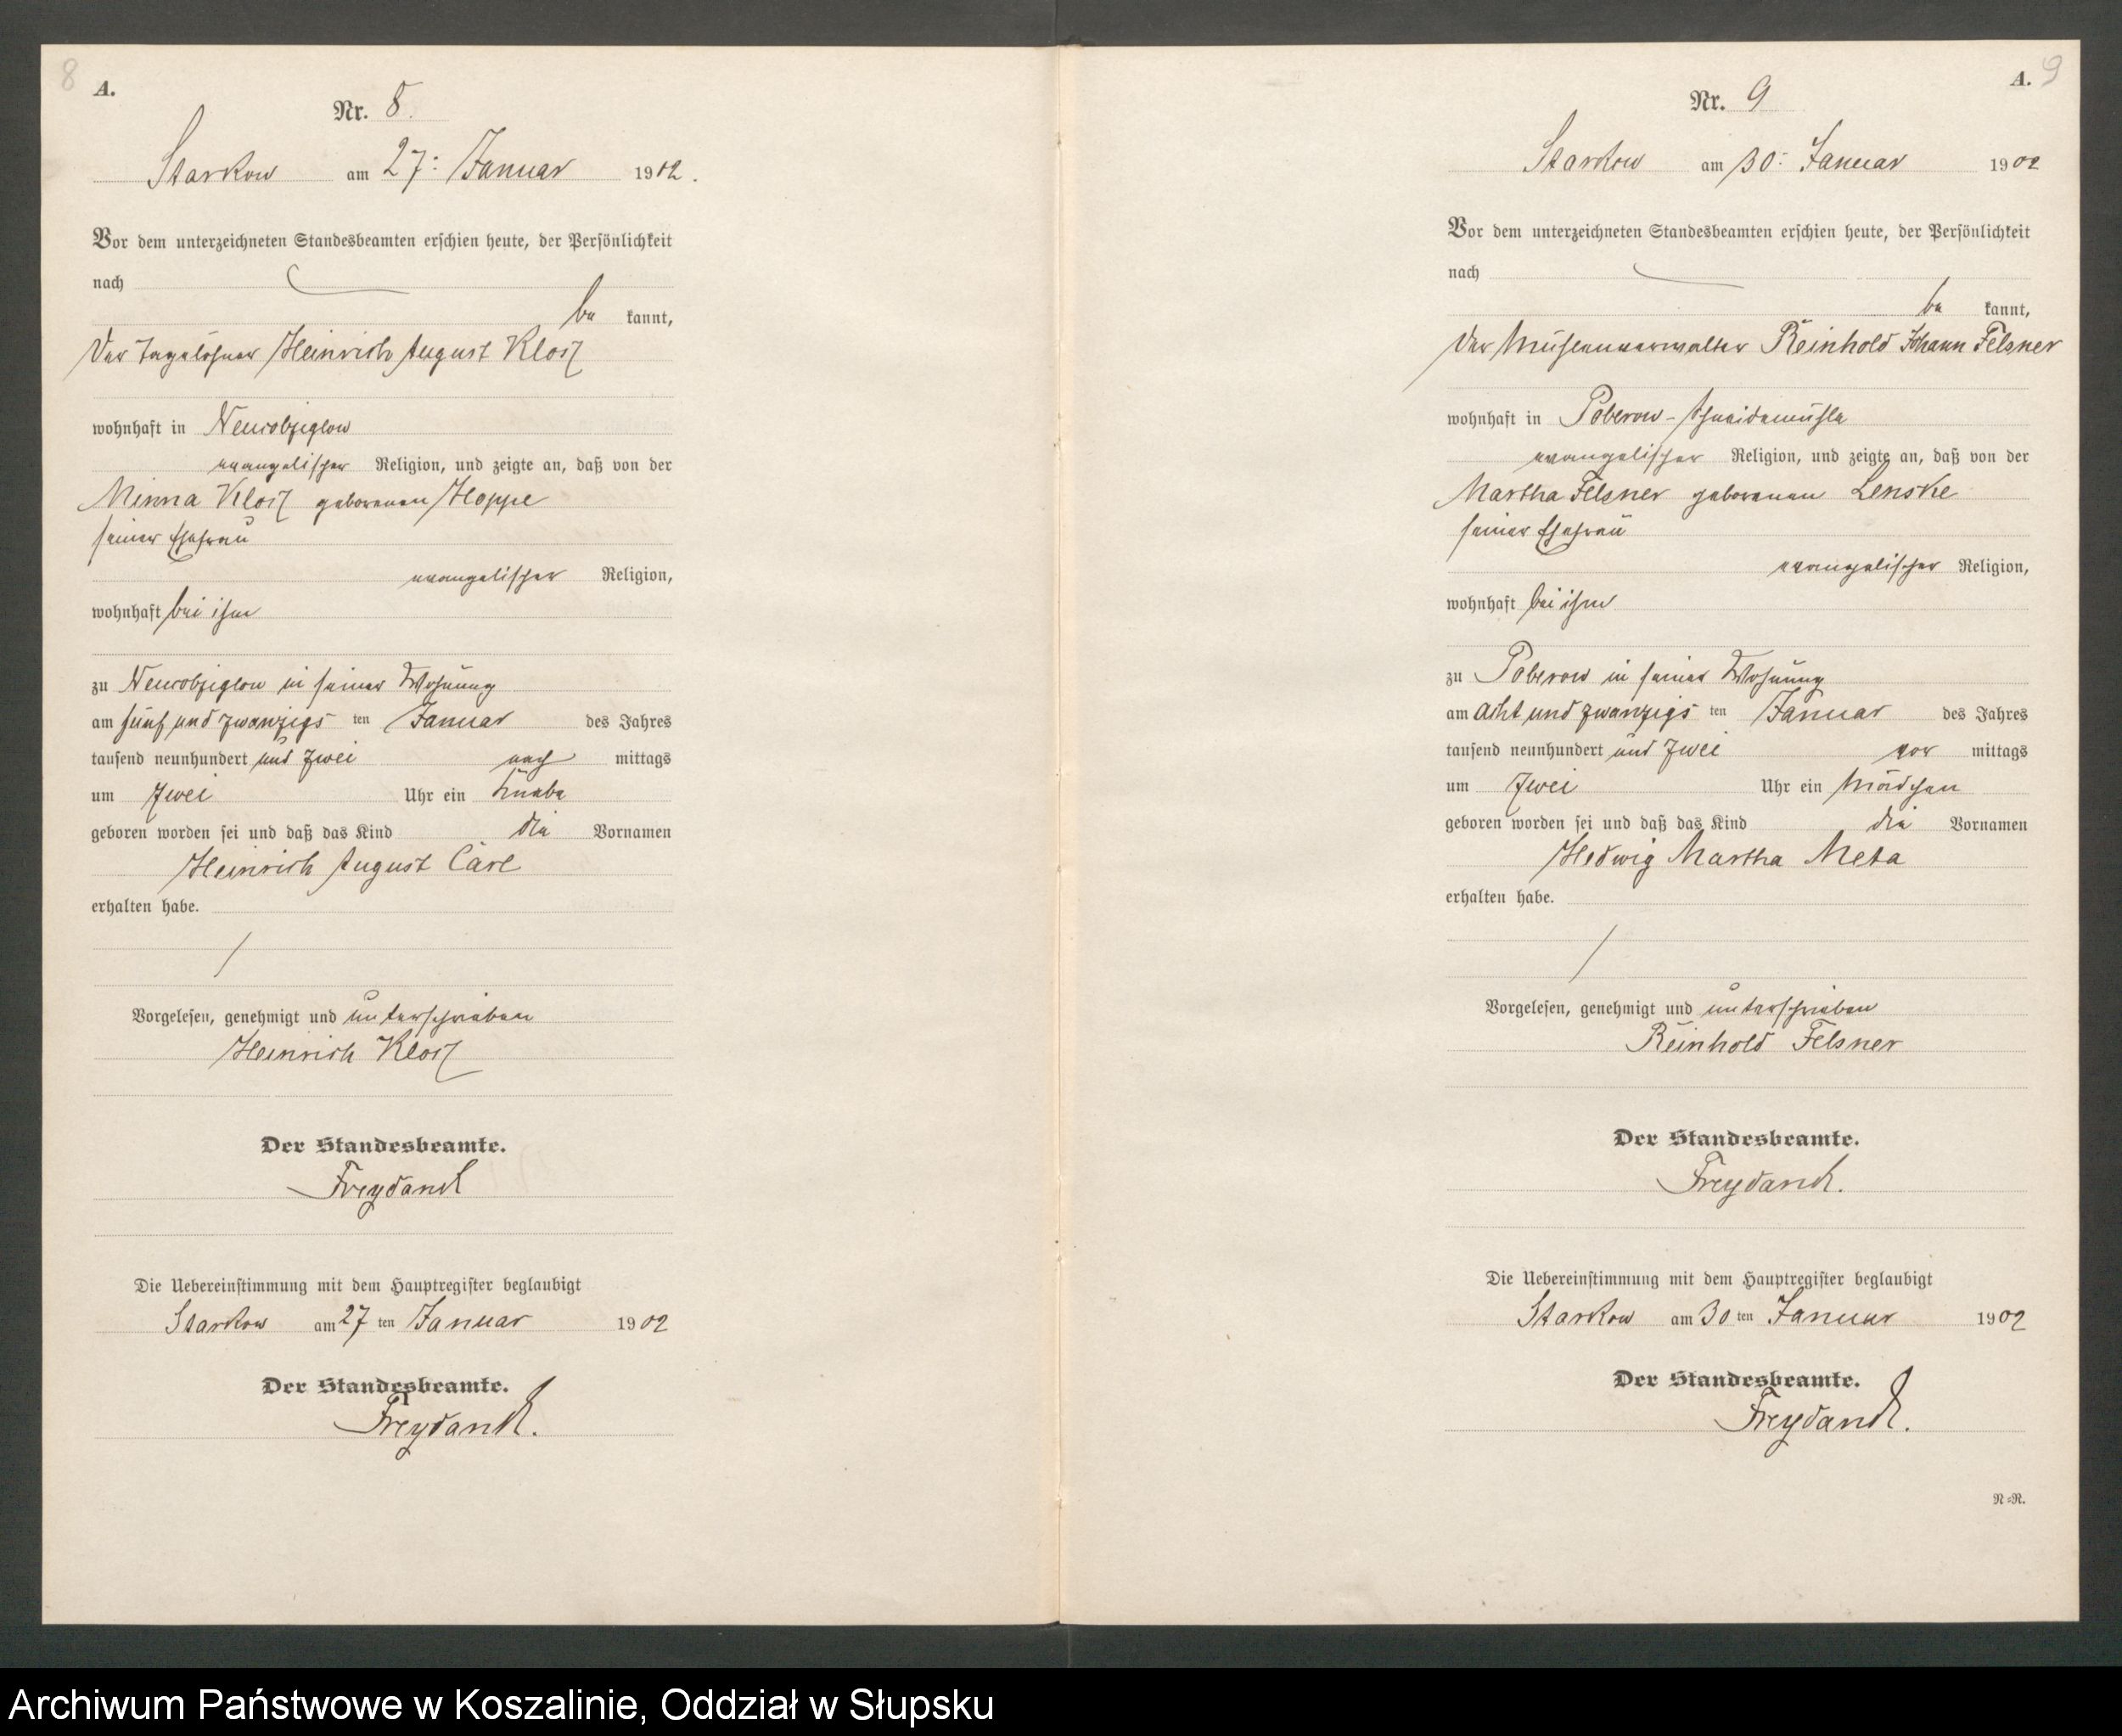 8
A.
Nr. 8.
Starkow am 27: Januar 1902.
Vor dem unterzeichneten Standesbeamten erschien heute, der Persönlichkeit
nach
be kannt,
der Tagelöhner Heinrich August
wohnhaft in
evangelischer Religion, und zeigte an, daß von der
Minna geborenen Hoppe
seiner Ehefrau
evangelischer Religion,
wohnhaft bei ihm
zu in seiner Wohnung
am fünf und zwanzigs ten Januar des Jahres
tausend neunhundert und zwei nach mittags
um zwei Uhr ein Knabe
geboren worden sei und daß das Kind die Vornamen
Heinrich August Carl
erhalten habe.
Vorgelesen, genehmigt und unterschrieben
Heinrich
Der Standesbeamte.
Freydanck
Die Uebereinstimmung mit dem Hauptregister beglaubigt
Starkow am 27 ten Januar 1902
Der Standesbeamte.
Freydanck.
A. 9
Nr. 9
Starkow am 30: Januar 1902
Vor dem unterzeichneten Standesbeamten erschien heute, der Persönlichkeit
nach
be kannt,
der Mühlenverwalter Reinhold Johann Felsner
wohnhaft in Poberow-Schneidemühle
evangelischer Religion, und zeigte an, daß von der
Martha Felsner geborenen Lenske
seiner Ehefrau
evangelischer Religion,
wohnhaft bei ihm
zu Poberow in seiner Wohnung
am acht und zwanzigs ten Januar des Jahres
tausend neunhundert und zwei vor mittags
um zwei Uhr ein Mädchen
geboren worden sei und daß das Kind die Vornamen
Hedwig Martha Meta
erhalten habe.
Vorgelesen, genehmigt und unterschrieben
Reinhold Felsner
Der Standesbeamte.
Freydanck.
Die Uebereinstimmung mit dem Hauptregister beglaubigt
Starkow am 30 ten Januar 1902
Der Standesbeamte.
Freydanck.
N=R.
Archiwum Państwowe w Koszalinie, Oddział w Słupsku